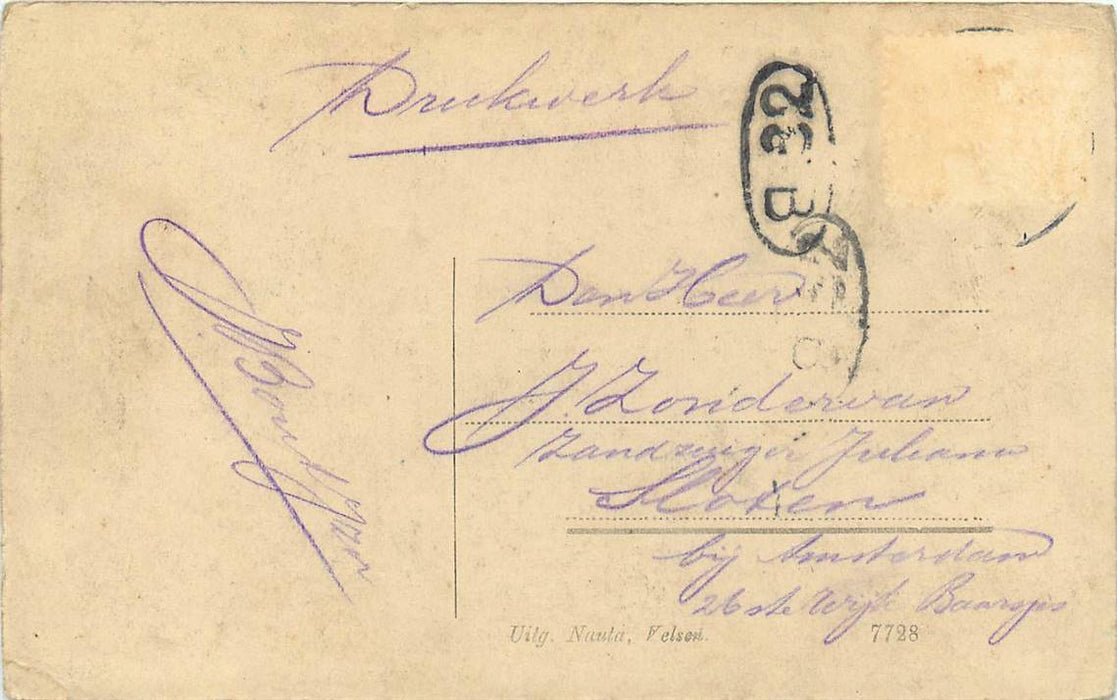 Drukwerk
B 32
Den Heer
J. Zondervan
Zandzuiger Juliana
Sloten
bij Amsterdam
26 ste Wijk Baarsjes
Uitg. Nauta, Velsen.
7728